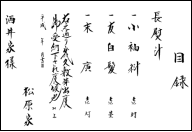 目録
長熨斗
一 小袖料 壱封
一 友白髪 壱台
一 末広 壱対
右之通り幾久敷芽出度
御受納下され度候也 以上
平成 年 月 吉日
松原家
酒井家様